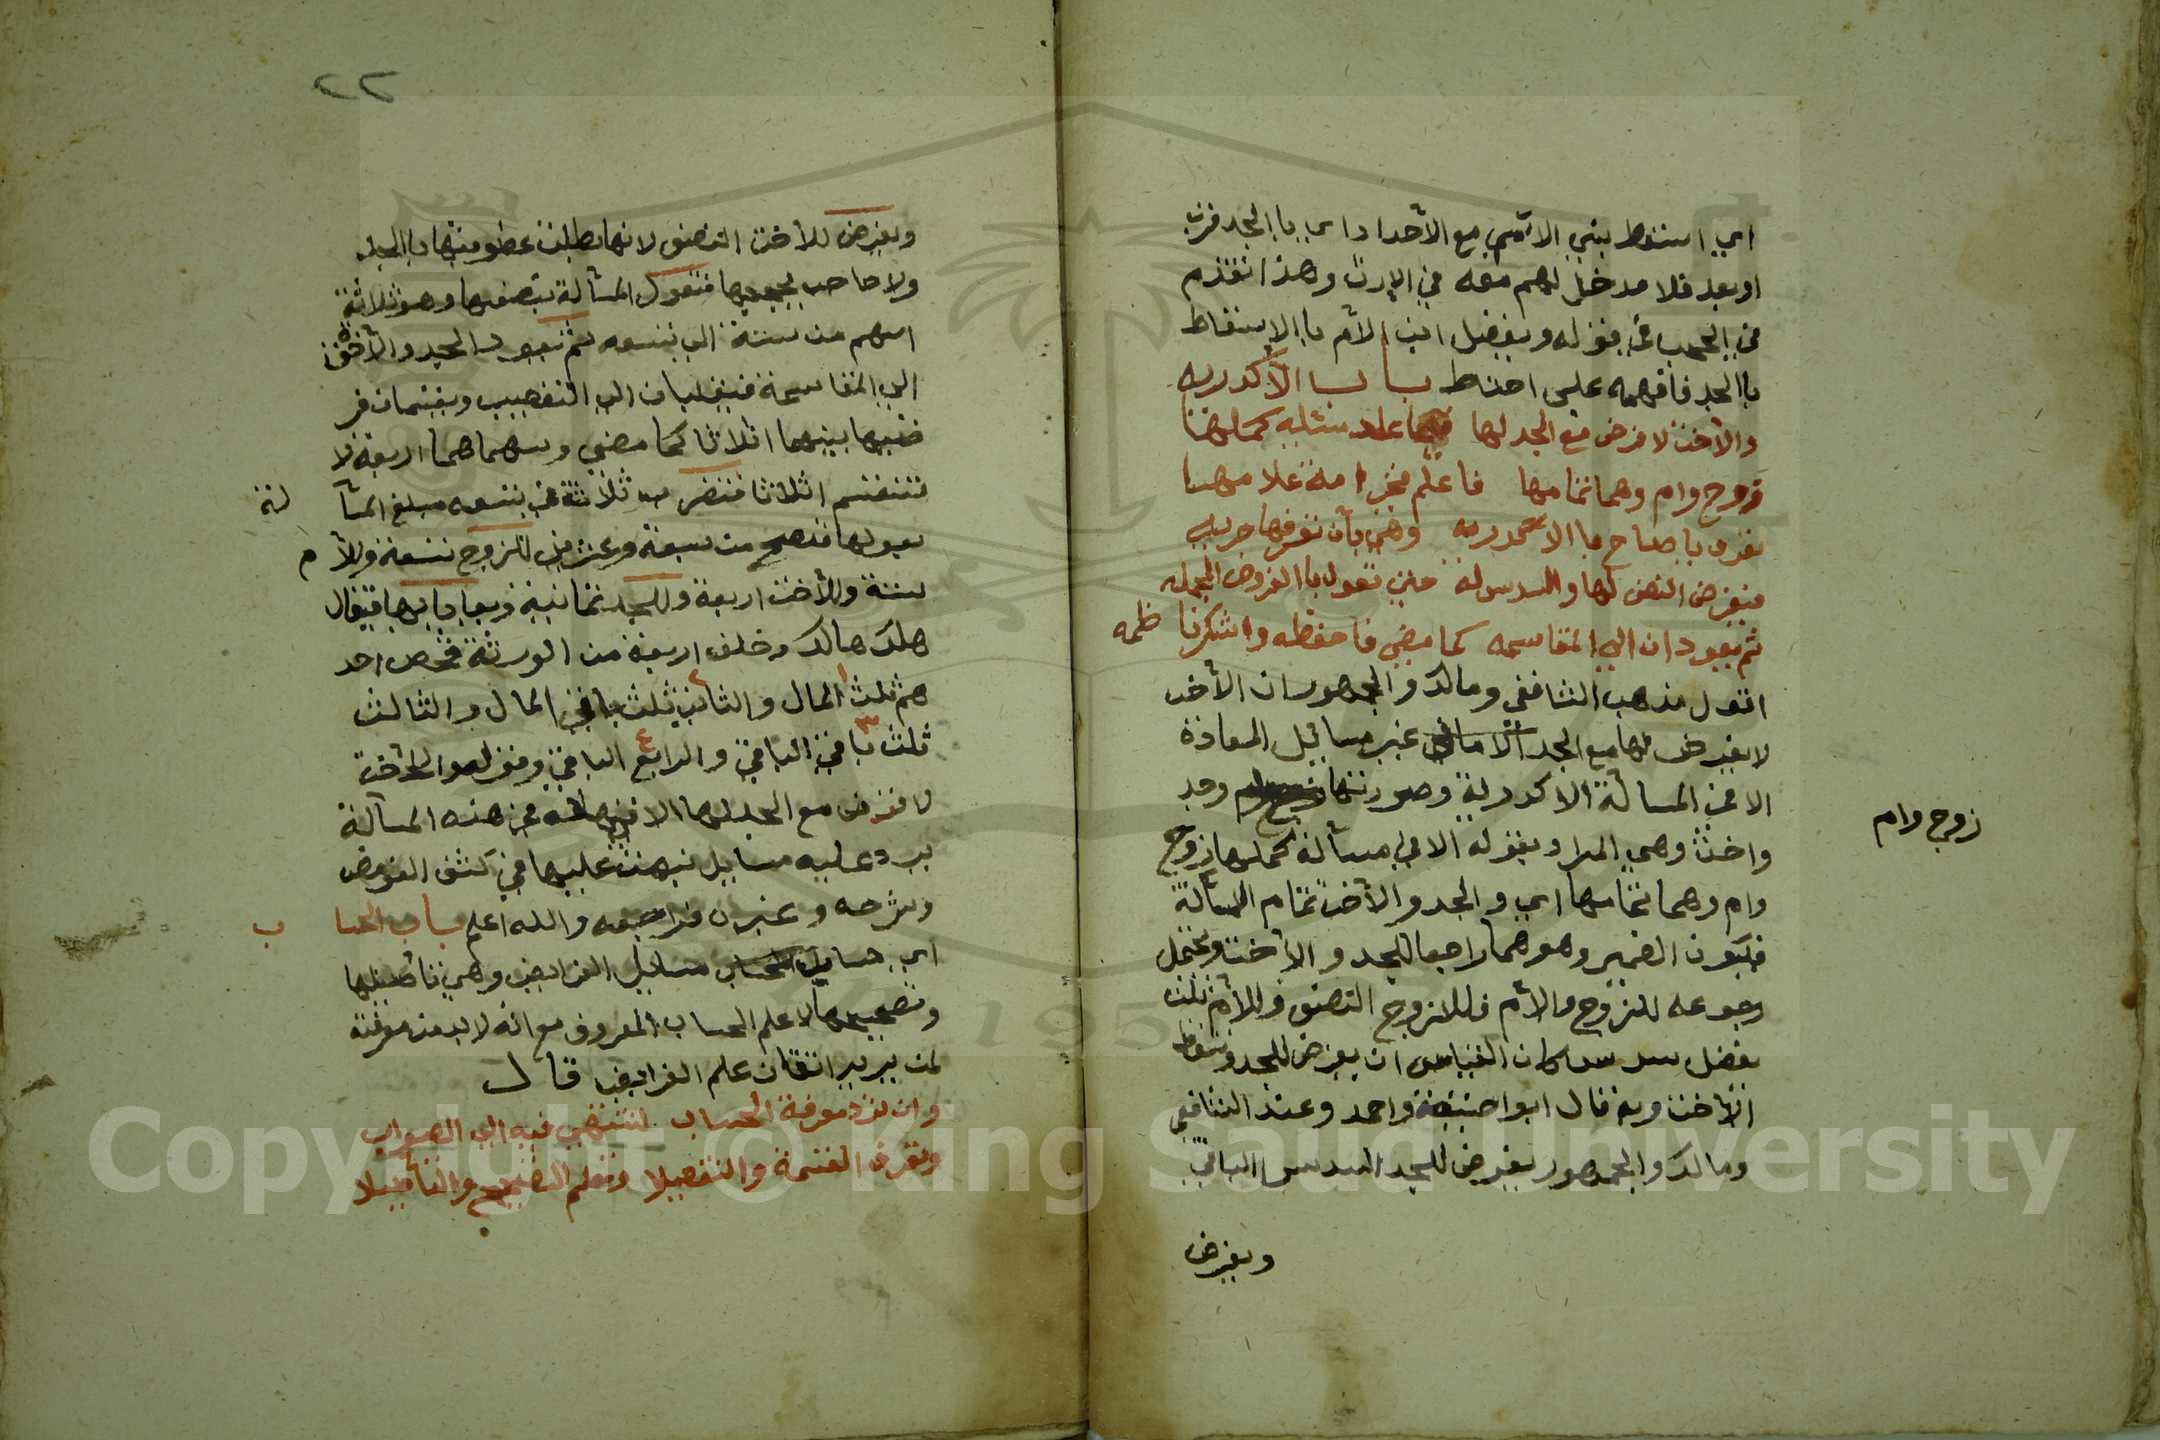 اي اسقط بني الام مع الاجداد اي بالجد قرب
او بعد فلا مدخل لهم معه في الارث وهذا تقدم
في الحجب في قوله ويفضل ابن الام بالاسقاط
بالجد فافهمه على احتياط باب الاكدرية
والاخت لا فرض مع الجد لها فيما عدا مسئلة كملها
زوج وام وهما تمامها فاعلم فخير امة علامها
تعرف يا صاح بالاكدريه وهي بان تعرفها حريه
فيفرض النصف لها والسدس له حتى تعول بالفروض المجمله
ثم يعودان الى المقاسمه كما مضى فاحفظه واشكر ناظمه
اقول مذهب الشافعي ومالك والجمهور ان الاخت
لا يفرض لها مع الجد في غير مسايل المعادة
الا في المسالة الاكدرية وصورتها وجد
زوج وام
واخت وهي المراد بقوله الا في مسالة كملها زوج
وام وهما تمامها اي والجد والاخت تمام المسالة
فيكون الضمير وهو هما راجعا للجد والاخت ويحتمل
رجوعه للزوج والام فللزوج النصف وللام ثلث
يفضل سدس كان القياس ان يفرض للجد وتسقط
الاخت وبه قال ابوا حنيفة واحمد وعند الشافعي
ومالك والجمهور يفرض للجد السدس الباقي
ويفرض
٢٢
ويفرض للاخت النصف لانها بطلت عصوبتها بالجد
ولا حاجب يحجبها فتعول المسالة بنصفها وهو ثلاثة
اسهم من ستة الى تسعه ثم يعود الجد والاخت
الى المقاسمة فينقلبان الى التعصيب ويقتسمان فر
ضيهما بينهما اثلاثا كما مضى وسهماهما اربعة لا
تنقسم اثلاثا فتضرب ثلاثة في تسعه مبلغ المسا لة
بعولها فتصح من سبعة وعشرين للزوج تسعة وللام
ستة وللاخت اربعة وللجد ثمانية ويعايا بها فيقال
هلك هالك وخلف اربعة من الورثة فخص احد
هم ثلث المال والثاني ثلث باقي المال والثالث
ثلث باقي الباقي والرابع الباقي وقوله والاخت
لا فرض مع الجد لها الا في هذه المسالة
يرد عليه مسايل نبهت عليها في كشف الغوامض
وشرحه وغيره فراجعه والله اعلم باب الحسا ب
اي حساب مسايل الفرايض وهي تاصيلها
وتصحيحها لا علم الحساب المعروف مع انه لا بد من معرفته
لمن يريد اتقان علم الفرايض قال
وان ترد معرفة الحساب لتنتهي فيه الى الصواب
وتعرف القسمة والتفصيلا وتعلم التصحيح والتاصيلا